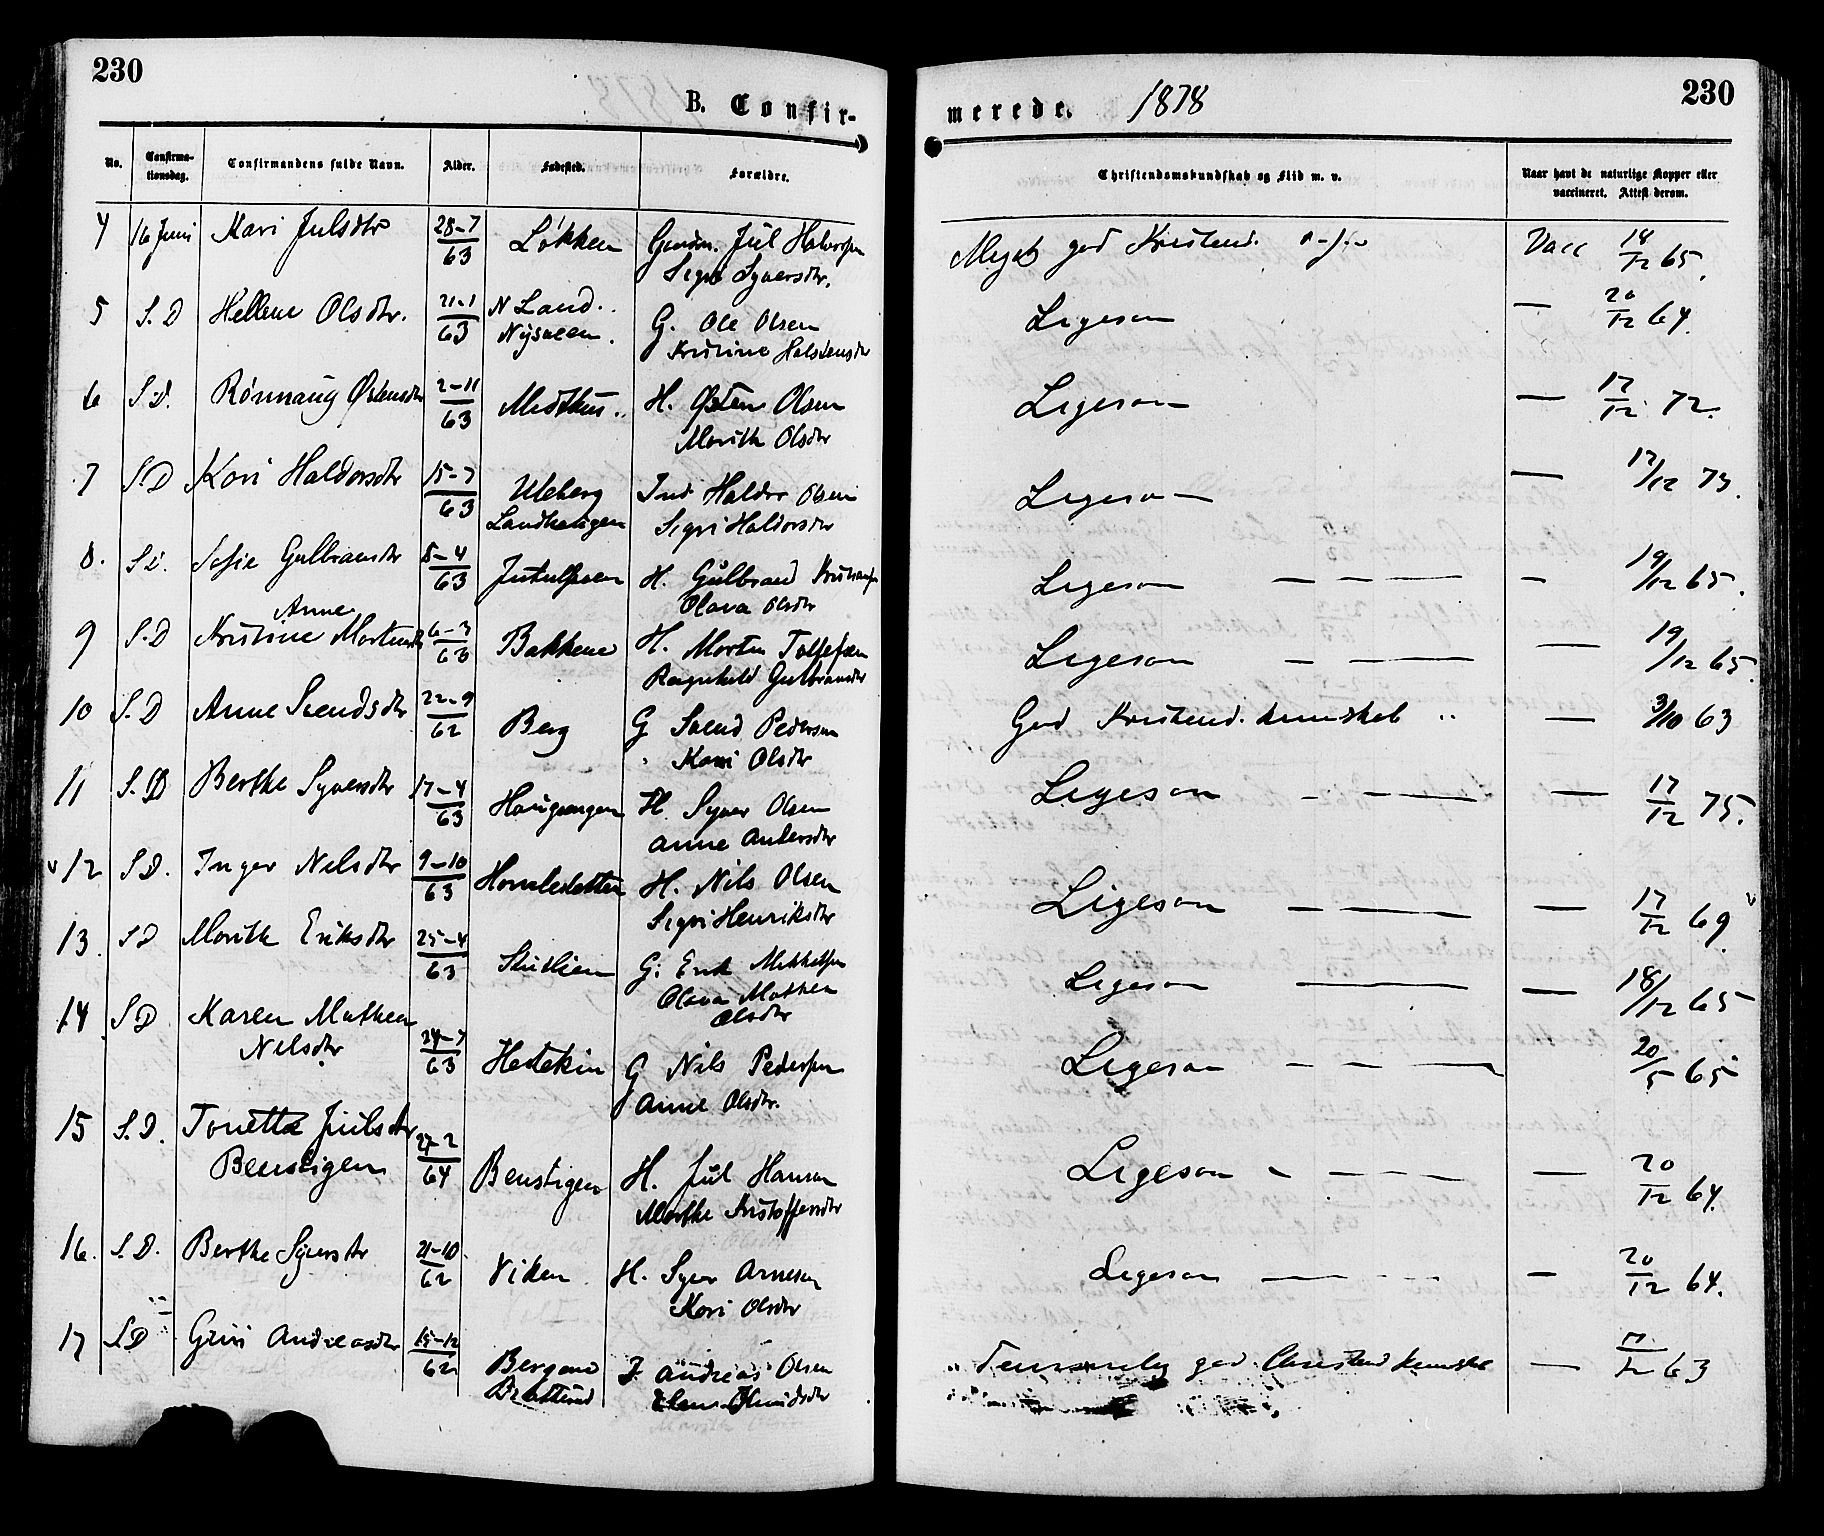 230
B. Confir-
No.
Confirma-
tionsdag.
Confirmandens fulde Navn.
Alder.
Fødested.
Forældre.
4 16 Juni Kari Julsdtr 28-7/63 Løkken Gaardm. Jul Halvorsen
Sigri Syversdtr.
5 S. D Hellene Olsdtr. 21-1/63 N Land. G. Ole Olsen
Kristine Halstensdtr
6 S.D. Rønnaug Østensdtr 2-11/63 Midthus. H. Østen Olsen
Marith Olsdtr
7 S.D Kari Haldorsdtr 15-7/63 Uleberg Ind Haldor Olsen
Landhaugen Sigri Haldorsdtr
8. S D. Sofie Gulbransdtr 8-4/63 H. Gulbrand
Olava Olsdtr
Anne
9 S.D Kristine Mortensdtr 6-3/63 Bakkene H. Morten Tollefsen
Ragnhild Gulbransdtr
10 S. D Anne Svendsdtr 22-9/62 Berg G Svend Pedersen
Kari Olsdtr
11 S. D Berthe Syversdtr 17-4/63 H. Syver Olsen
Anne Andersdtr
12 S D. Inger Nilsdtr 9-10/63 H. Nils Olsen
Sigri Henriksdtr
13. S D Marith Eriksdtr 25-4/63 G. Erik Mikkelsen
Olava Mathea
Olsdtr
14 S D Karen Mathea 24-7/63 G Nils Pedersen
Nilsdtr Anne Olsdtr.
15 S. D. Tonette Julsdtr 27-2/64 Benstigen H. Jul Hansen
Beenstigen Marthe Kristoffersdtr
16. S. D. Berthe Syversdtr 21-10/62 Viken H. Syver Arnesen
Kari Olsdtr
17 S D Guri Andreasdtr 15-12/62 J. Andreas Olsen
merede. 1878
230
Christendomskundskab og Flid m. v.
Naar havt de naturlige Kopper eller
vaccineret. Attest derom.
Meget god Kristend. Vacc 18/12 65.
Ligesaa — 20/12 64.
Ligesaa — 17/12 72.
Ligesaa — 17/12 73.
Ligesaa — — — — 19/12 65.
Ligesaa — — — 19/12 65.
God Kristend. kunskab — 3/10 63
Ligesaa — — — — 17/12 75.
Ligesaa — — — — 17/12 69
Ligesaa — — 18/12 65
Ligesaa — — — 20/5 65
Ligesaa — — — — 20/12 64.
Ligesaa — — — — 20/12 64.
Temmelig god Christend kunsk — 17/12 63